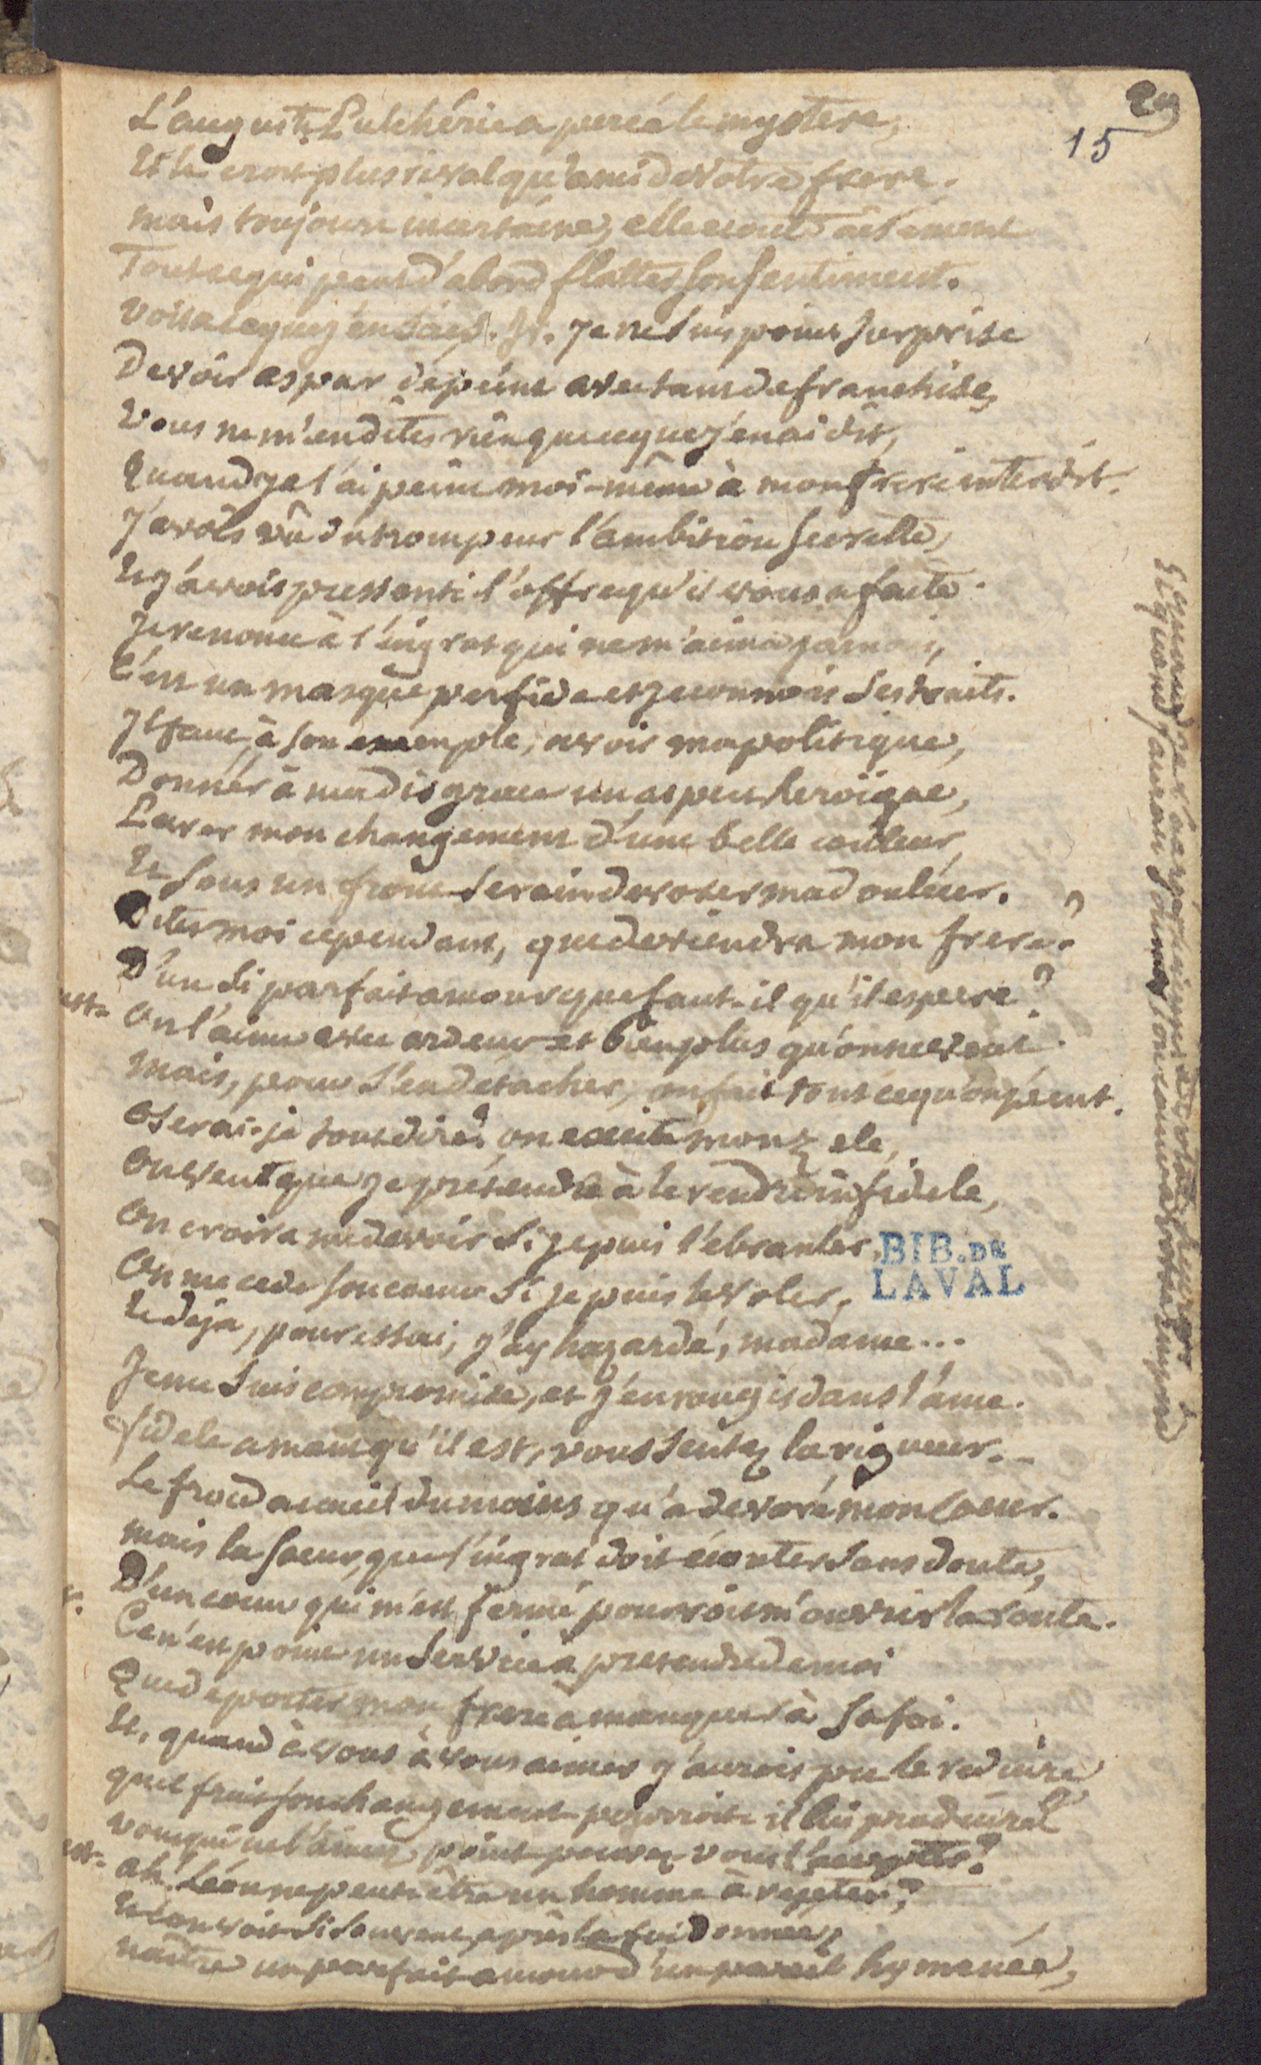 29
15
L'auguste Pulchérie a percé le mystere,
Et le croit plus rival qu'ami de votre frere.
mais toujours incertaine, elle ecoute aisément
Tout ce qui peut d'abord flatter son sentiment.
voila ce que j'en sais. Ir. Je ne suis point surprise
De voir aspar dépeint avec tant de franchise,
Vous ne m'en dites rien que ce que j'en ai dit,
Quand je l'ai peint moi-même à mon frere interdit.
J'avois vû du trompeur l'ambition secrette,
Et j'avois pressenti l'offre qu'il vous a faite.
Je renonce à l'ingrat qui ne m'aima jamais,
C'est un masque perfide et je connois ses traits.
Il faut, à son exemple, avoir ma politique,
Donner à ma disgrace un aspect heroïque,
Parer mon changement d'une belle couleur,
Et sous un front serain devorer ma douleur.
Dites moi cependant, que deviendra mon frere?
D'un si parfait amour que faut-il qu'il espere?
ust. On l'aime avec ardeur et bien plus qu'on ne veut.
Mais, pour s'en detacher, on fait tout ce qu'on peut.
Oserai-je tout dire? on excite mon zele,
On veut que je prétende à le rendre infidele,
On croira me devoir si je puis l'ebranler,
On me cede son coeur si je puis le voler,
Et déja, pour essai, j'ay hazardé, madame...
Je me suis compromise, et j'en rougis dans l'ame.
fidele amant qu'il est, vous sentez la rigueur..
Le froid acueil du moins qu'a devoré mon coeur.
mais la soeur, que l'ingrat doit écouter sans doute,
D'un coeur qui m'est fermé pourroit m'ouvrir la route.
r. Ce n'est point un service à pretendre de moi
Que de porter mon frere a manquer à sa foi.
Et, quand à vous à vous aimer j'aurois pu le reduire
quel fruit son changement pourroit-il lui produire?
vous qui ne l'aimez point pouvez vous l'accepter?
ust. ah! Léon ne peut être un homme à rejeter,
Et l'on voit si souvent, après la foi donnée,
naître un parfait amour d'un pareil hymenée,
BIB. DE
LAVAL